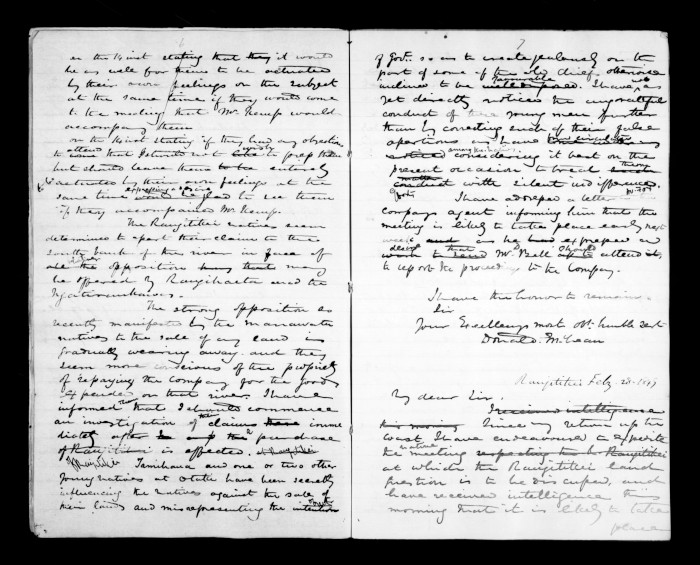 6
on the 16 inst stating that they'd would
be as well for them to be actuated
by their own feelings on the subject
at the same time if they would come
to the meeting that Mr Kemp would
accompany them
on the 16 inst stating if they had any objection
attend
to come that I should not wish to press them
but should leave them to be entirely
actuated by their own feelings at the
expressing a desire
same time would be glad to see them
if they accompanied Mr Kemp.
The Rangitikei natives seem
determined to assert their claim to the
South bank of the river in face of
all the opposition that may
be offered by Rangihaeata and the
Ngatiraukawas.
The strong opposition so
recently manifested by the Manawatu
natives to the sale of any land is
gradually wearing away and they
seem more conscious of the propriety
of repaying the Company for the goods
expended on that river. I have
informed them that I should commence
an investigation of their claims imme
diately after the purchase
of Rangitikei is effected.
Tamihana and one or two other
young natives at Otaki have been secretly
influencing the natives against the sale of
their lands and misrepresenting the intention
7
of Govt. so as to create jealously on the
part of some of the old chiefs otherwise
favourable
inclined to be well disposed. I have not
yet directly noticed the ungrateful
conduct of these young men further
than by correcting such of their false
assertions as I have
considering it best on the
present occasion to treat
conduct with silent indifference.
I have addressed a letter to the
Companys agent informing him that the
meeting is likely to take place early next
week and as he had expressed a
desire that should
wish to send Mr. Bell attend it
to report the proceedings to the Company.
I have the honor to remain.
Sir
Your Excellencys most obt. humble Sert
Donald. McLean
Rangitikei Feby. 23. 1849
My dear Sir.
I received intelligence
this morning Since my return up the
Coast I have endeavoured to expedite
native
the meeting respecting the Rangitikei
at which the Rangitikei land
question is to be discussed, and
have received intelligence this
morning that it is likely to take
place